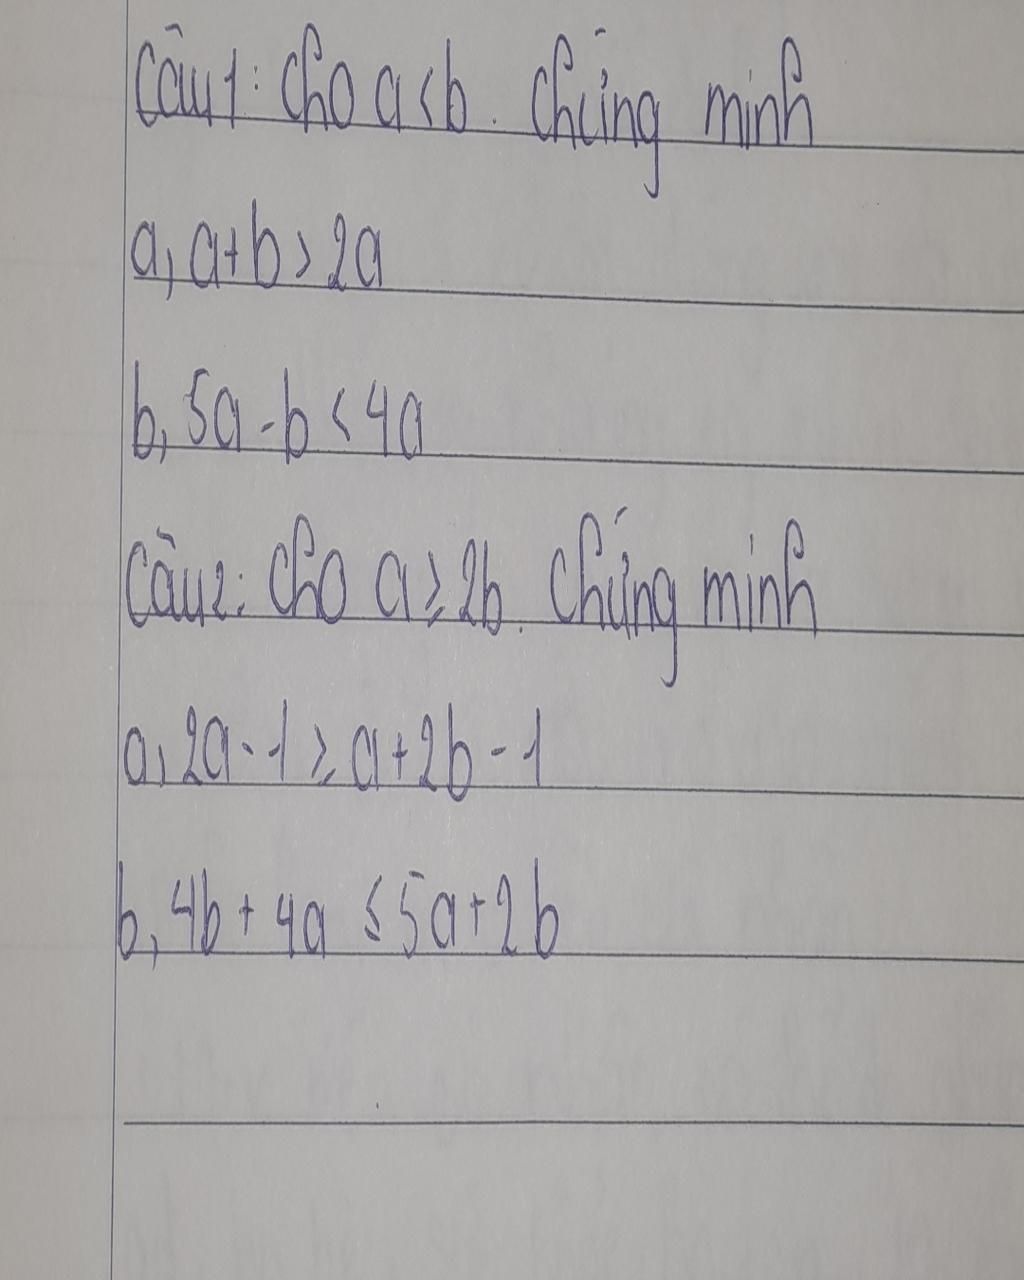 Câu 1: Cho a < b. Chứng minh
a, a + b > 2a
b, 5a - b < 4a
Câu 2: Cho a ≥ 2b. Chứng minh
a, 2a - 1 ≥ a + 2b - 1
b, 4b + 4a ≤ 5a + 2b